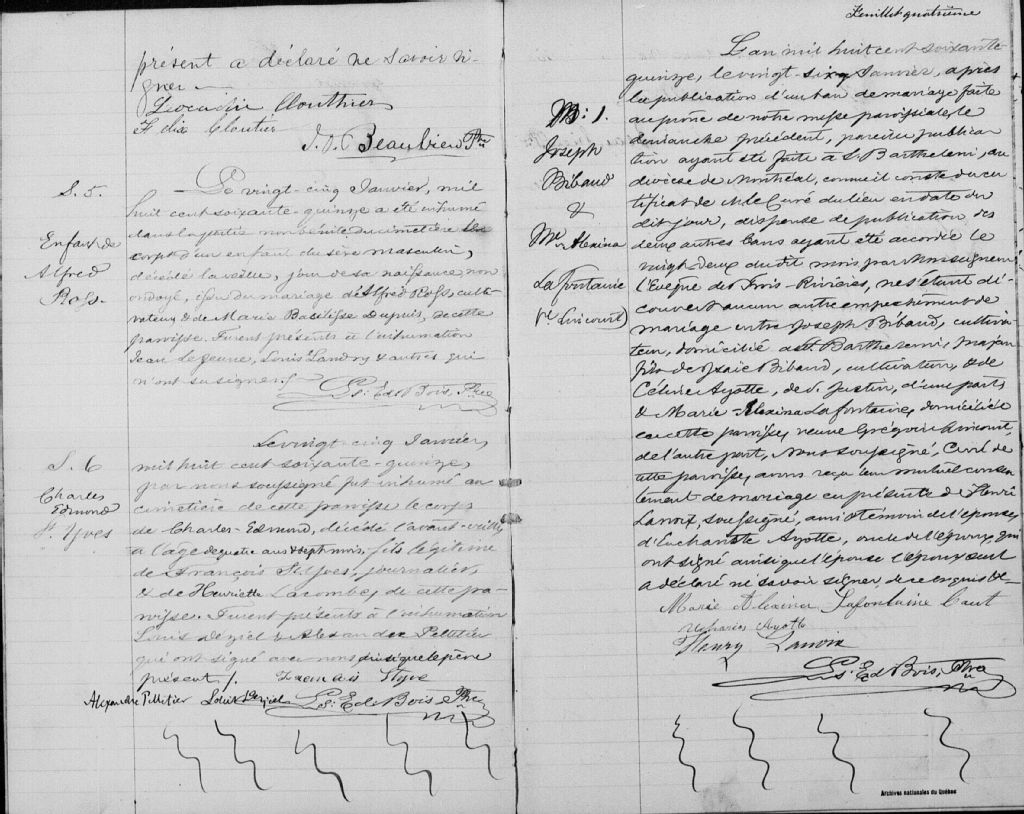 présent a déclaré ne savoir si-
gner.
Leocadie Clouthier
Felix Cloutier
J. O. Beaubien Ptre
S. 5.
Enfant de
Alfred
Ross.
Le vingt-cinq Janvier, mil
huit cent soixante-quinze a été inhumé
dans la partie non bénite du cimetière le
corps d'un enfant du sexe masculin,
décédé la veille, jour de sa naissance non
ondoyé, issu du mariage d'Alfred Ross, culti-
vateur, & de Marie Basilisse Dupuis, de cette
paroisse. Furent présents à l'inhumation
Jean Lejeune, Louis Landry & autres qui
n'ont su signer.
Ls. Ed. Bois, Ptre
S. 6
Charles
Edmond
St. Yves
Le vingt cinq Janvier,
mil huit cent soixante-quinze,
par nous soussigné fut inhumé au
cimetière de cette paroisse le corps
de Charles-Edmond, décédé l'avant-veille,
à l'âge de quatre ans & sept mois, fils légitime
de François St. Yves, journalier,
& de Henriette Lacombe, de cette pa-
roisse. Furent présents à l'inhumation
Louis Deziel & Alexandre Pelletier
qui ont signé avec nous ainsi que le père
présent /.
Alexandre Pelletier Louis Deziel Ls. Ed. Bois, Ptre
Feuillet quatrième
M: 1.
Joseph
Bibaud
&
Me. Alexina
Lafontaine
L'an mil huit cent soixante-
quinze, le vingt-six Janvier, après
la publication d'un ban de mariage faite
au prône de notre messe paroissiale, le
dimanche précédent, pareille publica-
tion ayant été faite à St. Barthelemi, au
diocèse de Montréal, comme il conste du cer-
tificat de M. le Curé du lieu en date du
dit jour, dispense de publication des
deux autres bans ayant été accordée le
vingt-deux du dit mois par Monseigneur
l'Evêque des Trois-Rivières, ne s'étant dé-
couvert aucun autre empêchement de
mariage entre Joseph Bibaud, cultiva-
teur, domicilié à St. Barthelemi, majeur
fils de Isaïe Bibaud, cultivateur, & de
Céline Ayotte, de St. Justin, d'une part;
& Marie-Alexina Lafontaine, domiciliée
en cette paroisse, veuve Grégoire
de l'autre part, Nous soussigné, Curé de
cette paroisse, avons reçu leur mutuel consen-
tement de mariage en présence de Henri
Lanoix, soussigné, ami & témoin de l'épouse,
d'Euchariste Ayotte, oncle de l'époux, qui
ont signé ainsi que l'épouse l'époux seul
a déclaré ne savoir signer, de ce enquis
Marie Alexina Lafontaine
Ayotte
Henry Lanoix
Ls. Ed. Bois, Ptre
Archives nationales du Québec